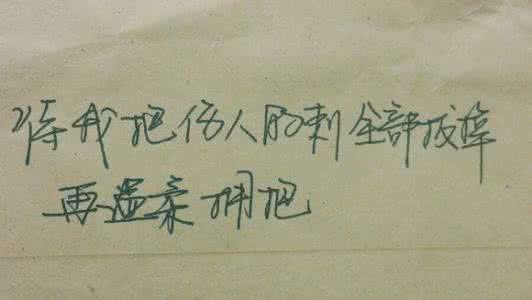 待我把伤人的刺全部拔掉
再温柔拥抱